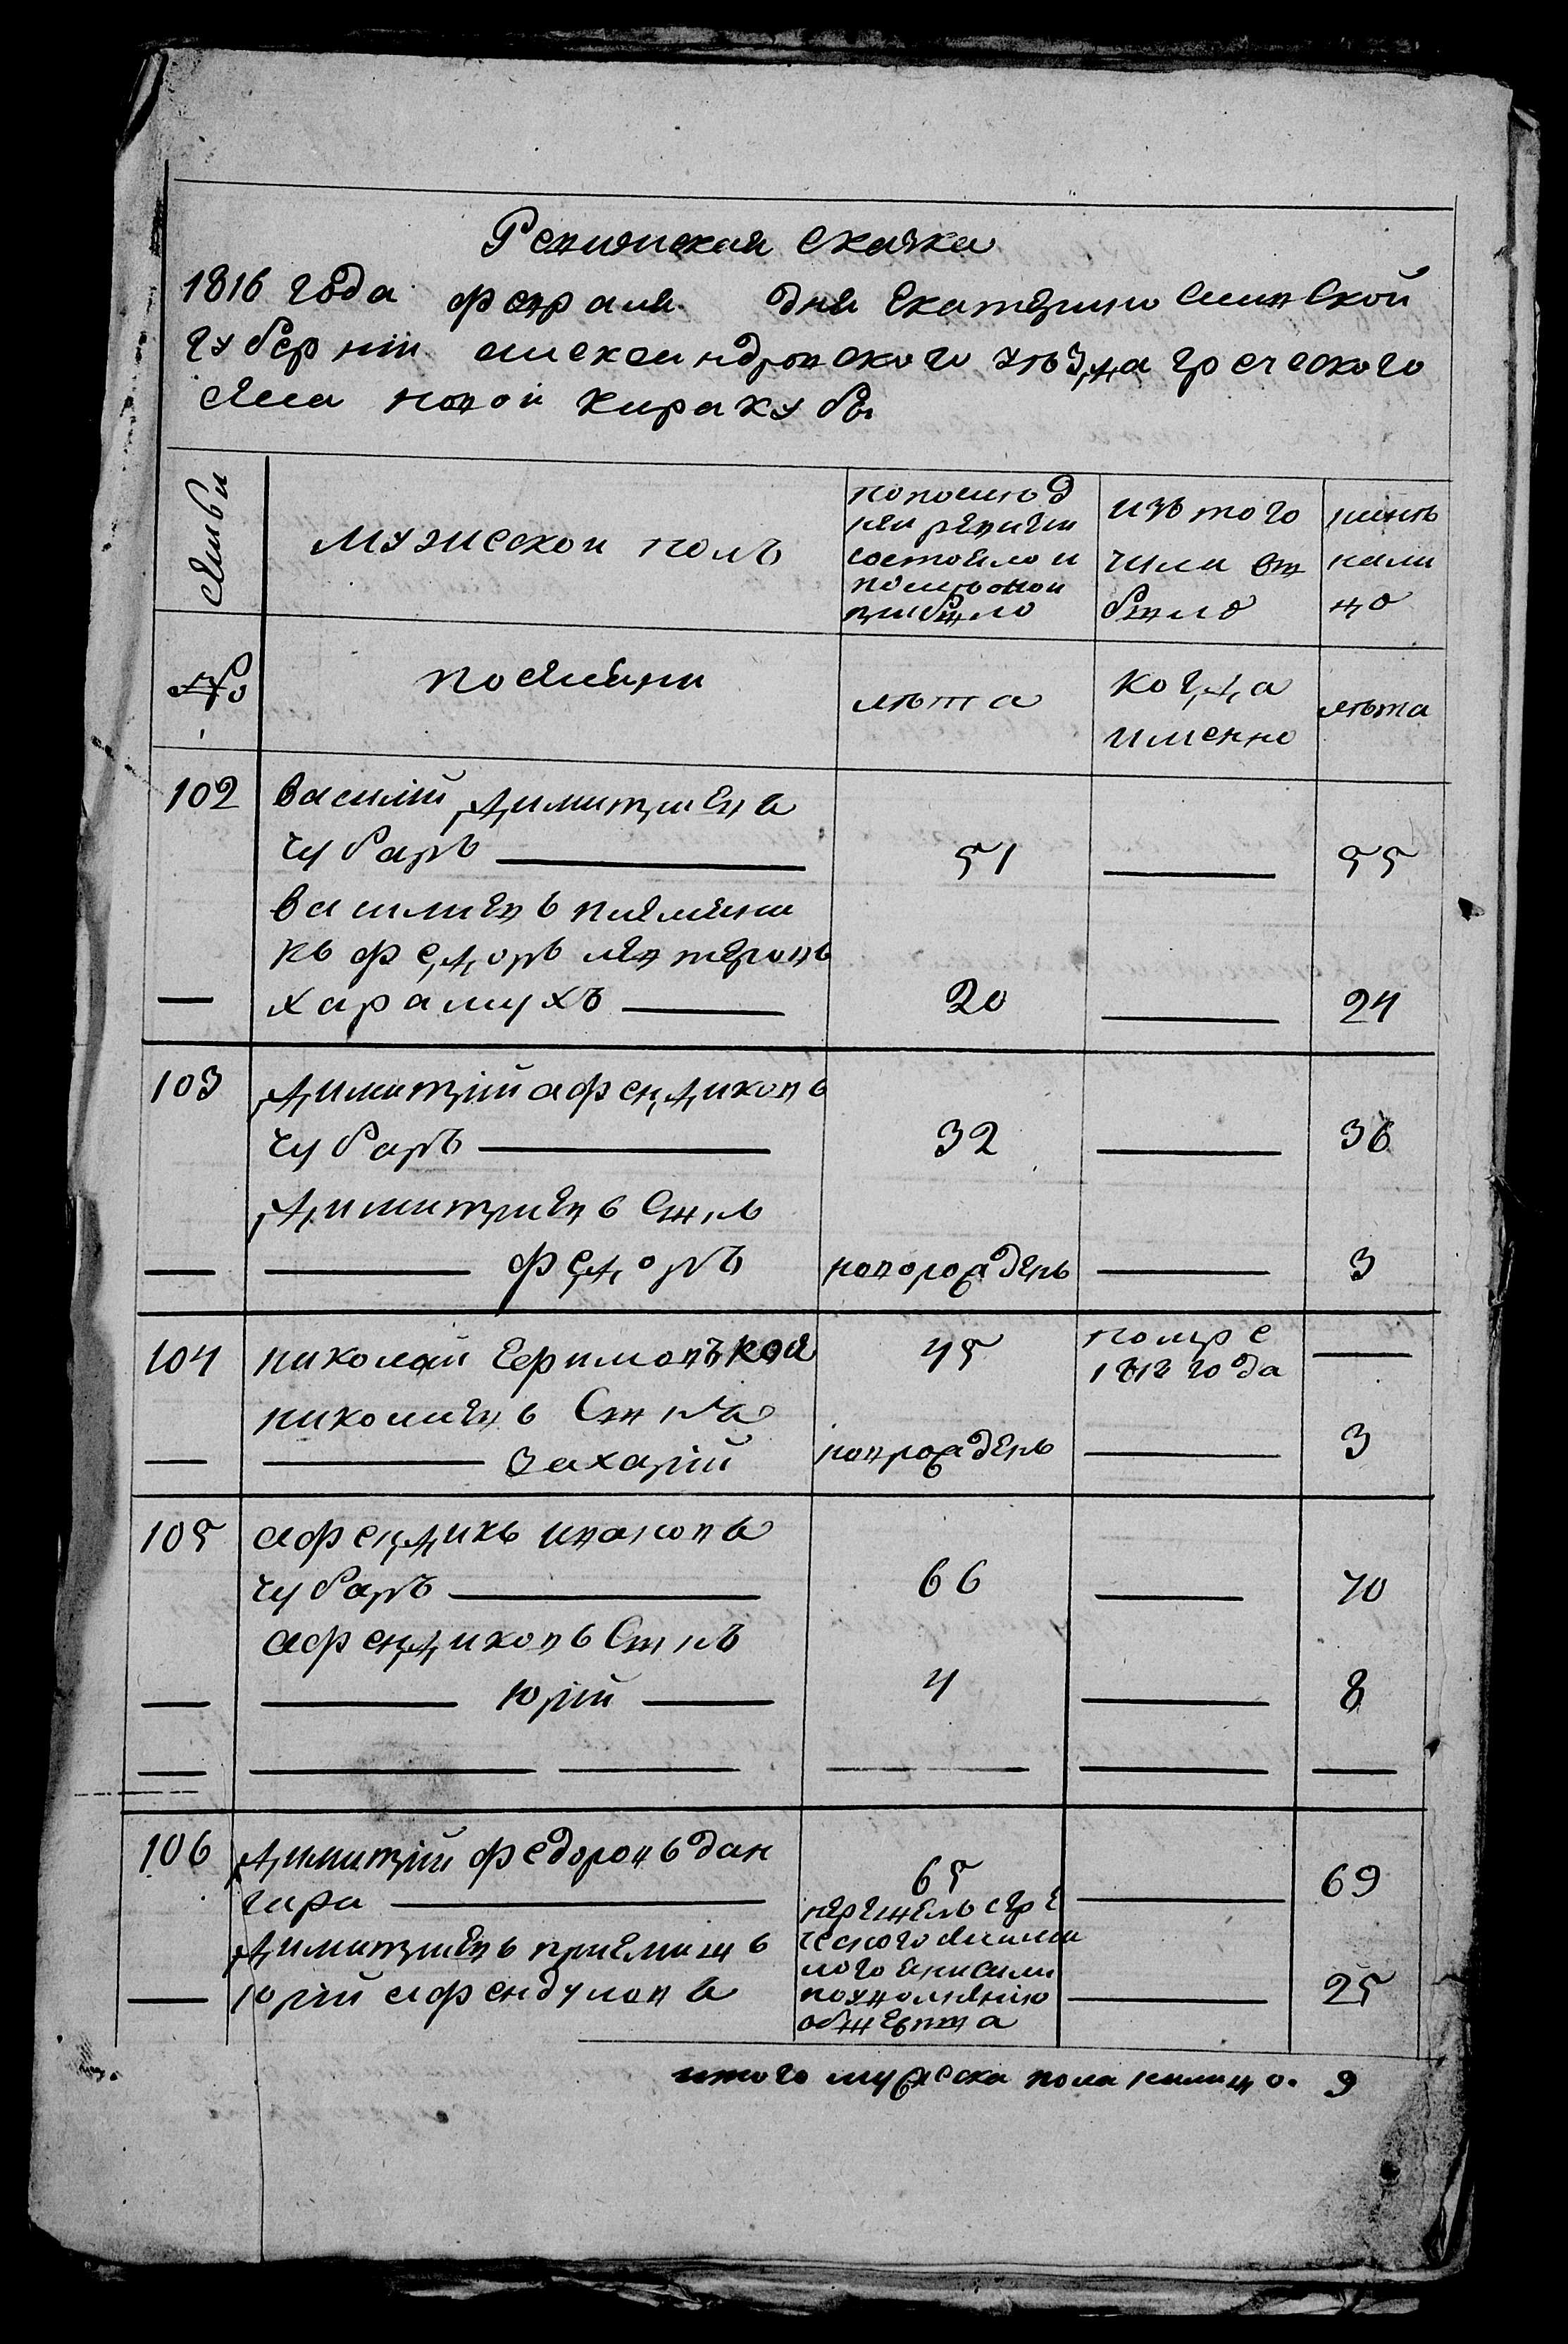 Ревизская скаска
1816 года февраля дня Екатеринославской
губерніи александровского уѣзда греческого
селеа новой каракубы
семьи
мужеской полъ
попослед
неи ревизии
состояло и
послѣ оной
прибыло
изъ того
числа вы
было
нинѣ
нали
цо
№
посемейни
лѣта
когда
именно
лѣта
102 василій димитриевъ
чубаръ 51 55
василиевъ племени
къ федоръ левтеровъ
харамухъ 20 24
103 димитрій афендиковъ
чубаръ 32 36
димитриевъ сынъ
федоръ новорожденъ 3
104 николай Ефимовъ коя 45 помре
1812 года
николаевъ сынъ
захарій новрожденъ 3
105 афендикъ ивановъ
чубаръ 66 70
афендиковъ сынъ
юрій 4 8
106 димитрій федоровъ дан
гара 65 69
димитриевъ приемышъ
юрій афендуловъ 25
ческого
лого енисали
поуволнению
общества
итого мужеска пола налицо. 9